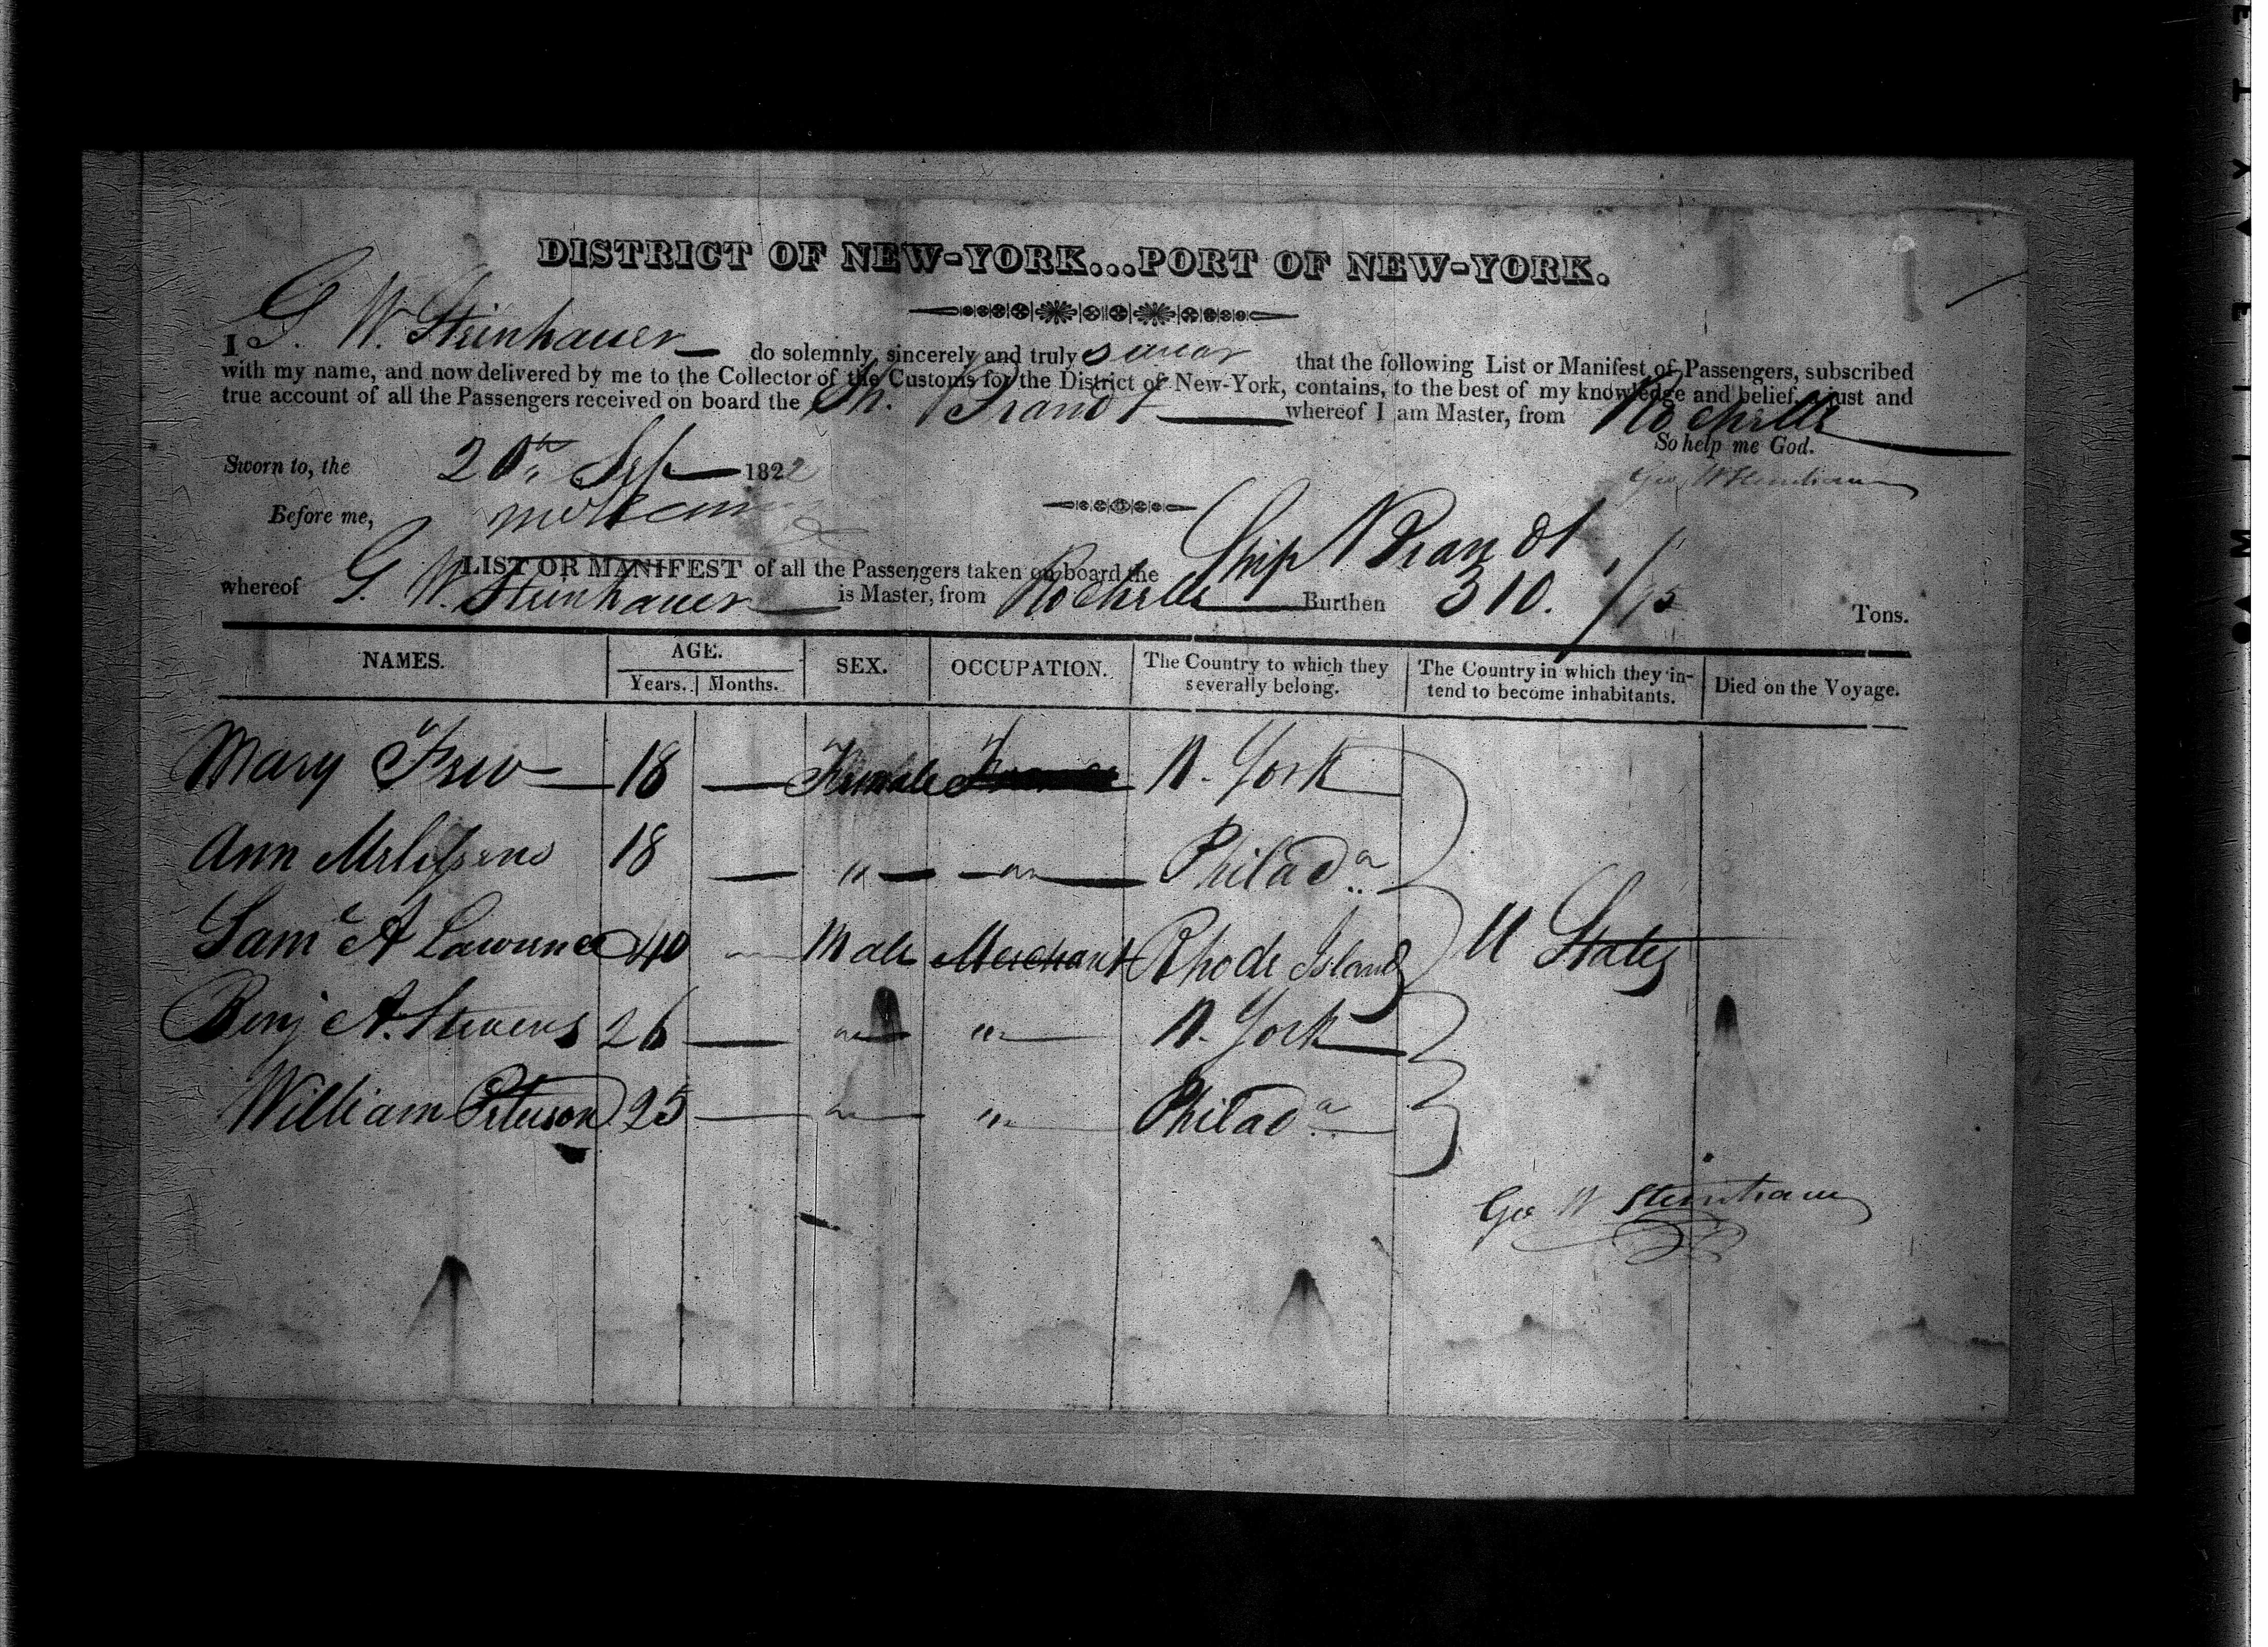 DISTRICT OF NEW-YORK...PORT OF NEW-YORK.
I G. W. Steinhauer do solemnly, sincerely and truly swear that the following List or Manifest of Passengers, subscribed
with my name, and now delivered by me to the Collector of the Customs for the District of New-York, contains, to the best of my knowledge and belief, a just and
true account of all the Passengers received on board the Sh. Brandt whereof I am Master, from Rochelle
So help me God.
Sworn to, the 20th Sep 1822
Geo W Steinhauer
Before me,
LIST OR MANIFEST of all the Passengers taken on board the Ship Brandt
whereof G. W. Steinhauer is Master, from Rochelle Burthen 310. /95 Tons.
NAMES. AGE. SEX. OCCUPATION. The Country to which they severally belong. The Country in which they intend to become inhabitants. Died on the Voyage.
Years. Months.
Mary Frew 18 — Female N. York
Ann 18 — " " Philad.a
Saml A Lawrence 40 — Male Merchant Rhode Island U States
Benj A. Stevens 26 — " " N. York
William Peterson 25 — " " Philad.a
Geo W Steinhauer